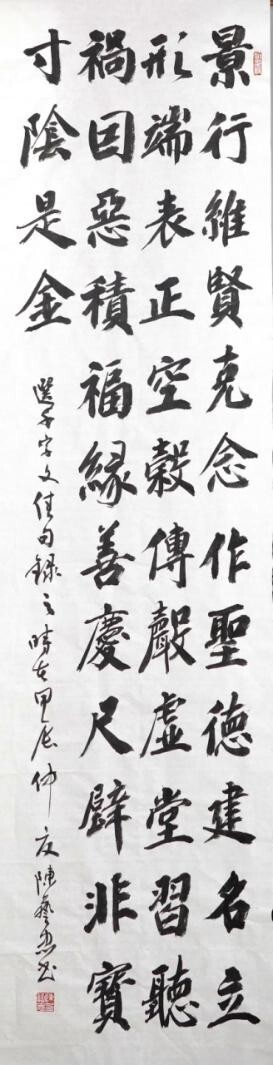 景行維賢克念作聖德建名立
形端表正空穀傳聲虛堂習聽
禍因惡積福緣善慶尺璧非寶
寸陰是金
選千字文佳句錄之時在甲辰仲夏陳藝忠书